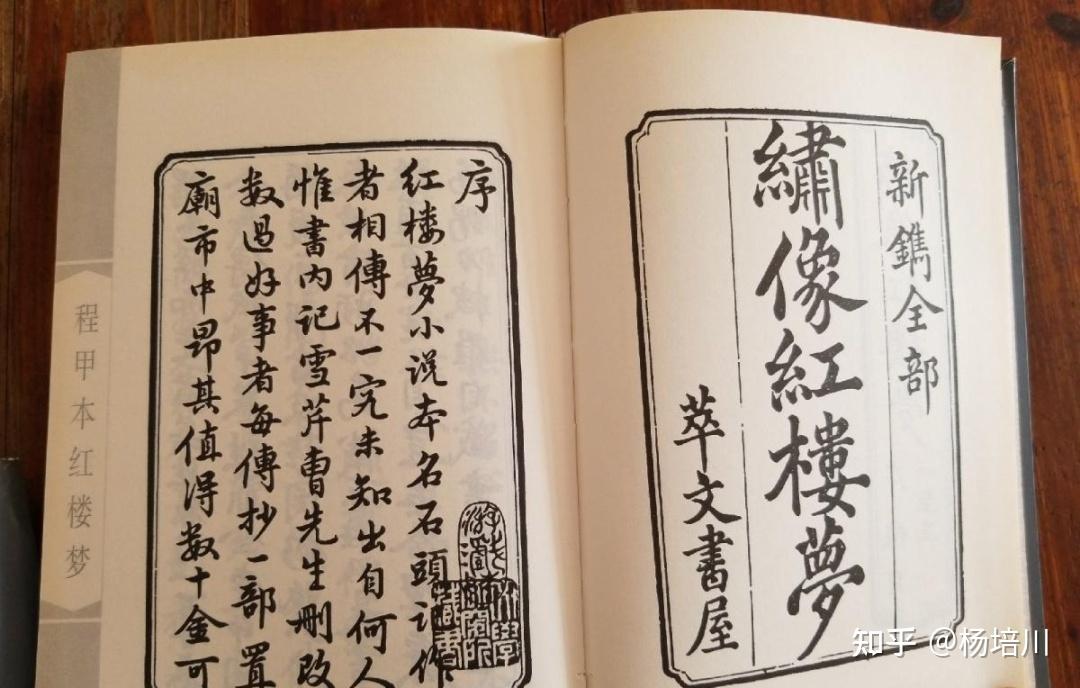 新鐫全部
繡像紅樓夢
萃文書屋
序
紅樓夢小說本名石頭記作
者相傳不一究未知出自何人
惟書内記雪芹曹先生刪改
数過好事者每傳抄一部置
廟市中昂其值得数十金可
程甲本红楼梦
知乎 @杨培川